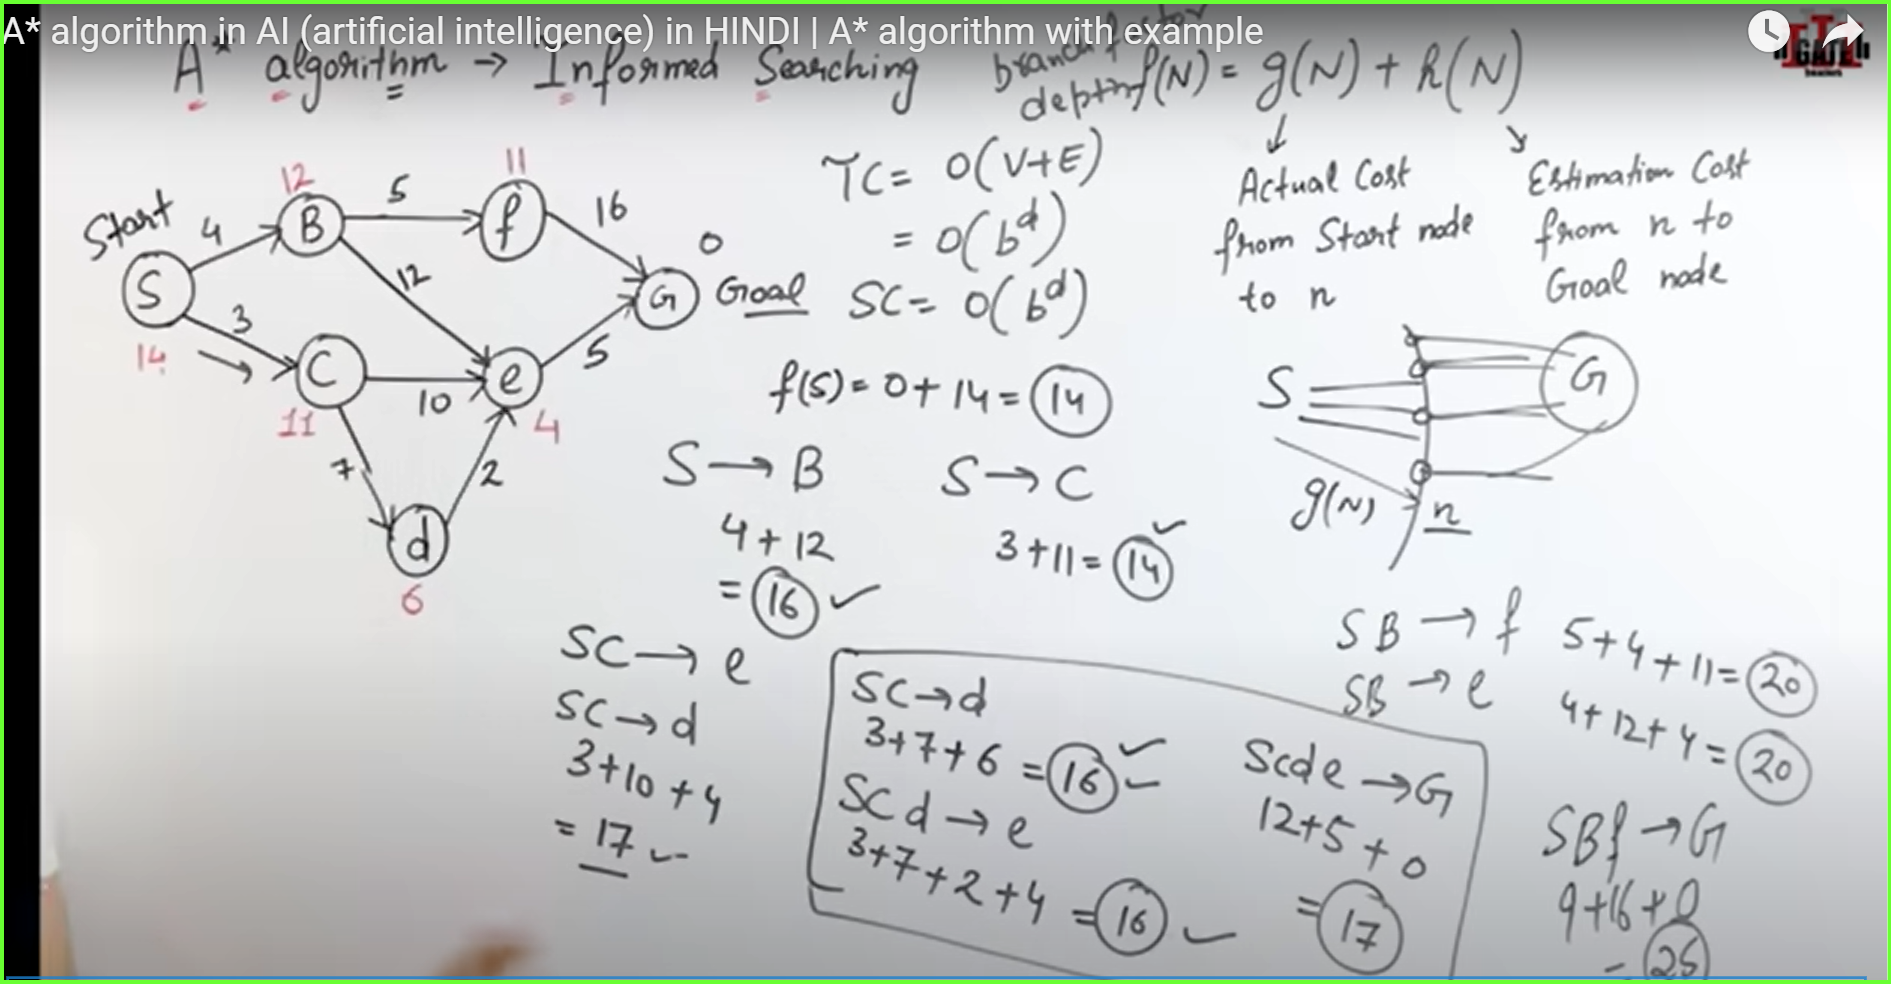 A* algorithm in AI (artificial intelligence) in HINDI | A* algorithm with example
A* algorithm → Informed Searching
branch factor
depth
f(N) = g(N) + h(N)
GATE
TC = O(V+E)
= O(b^d)
SC = O(b^d)
Actual Cost
from Start node
to n
Estimation Cost
from n to
Goal node
Start
S
14
4
3
B
12
5
12
C
11
10
7
f
11
16
e
4
5
d
6
2
G
0
Goal
f(S) = 0 + 14 = 14
S → B
4 + 12
= 16 ✓
S → C
3 + 11 = 14 ✓
S
G
g(N)
n
SC → e
SC → d
3 + 10 + 4
= 17 ✓
SC → d
3 + 7 + 6 = 16 ✓
SCd → e
3 + 7 + 2 + 4 = 16 ✓
Scde → G
12 + 5 + 0
= 17
SB → f 5 + 4 + 11 = 20
SB → e 4 + 12 + 4 = 20
SBf → G
9 + 16 + 0
= 25